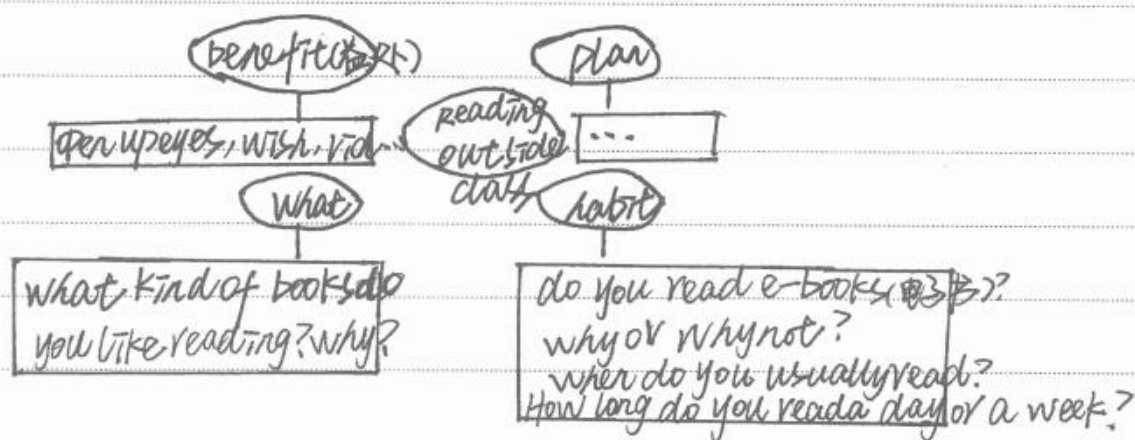 benefit(益处)
plan
open up eyes, wish, rid...
Reading
outside
class
...
what
habit
what kind of books do
you like reading? why?
do you read e-books(电子书)?
why or why not?
when do you usually read?
How long do you read a day or a week?